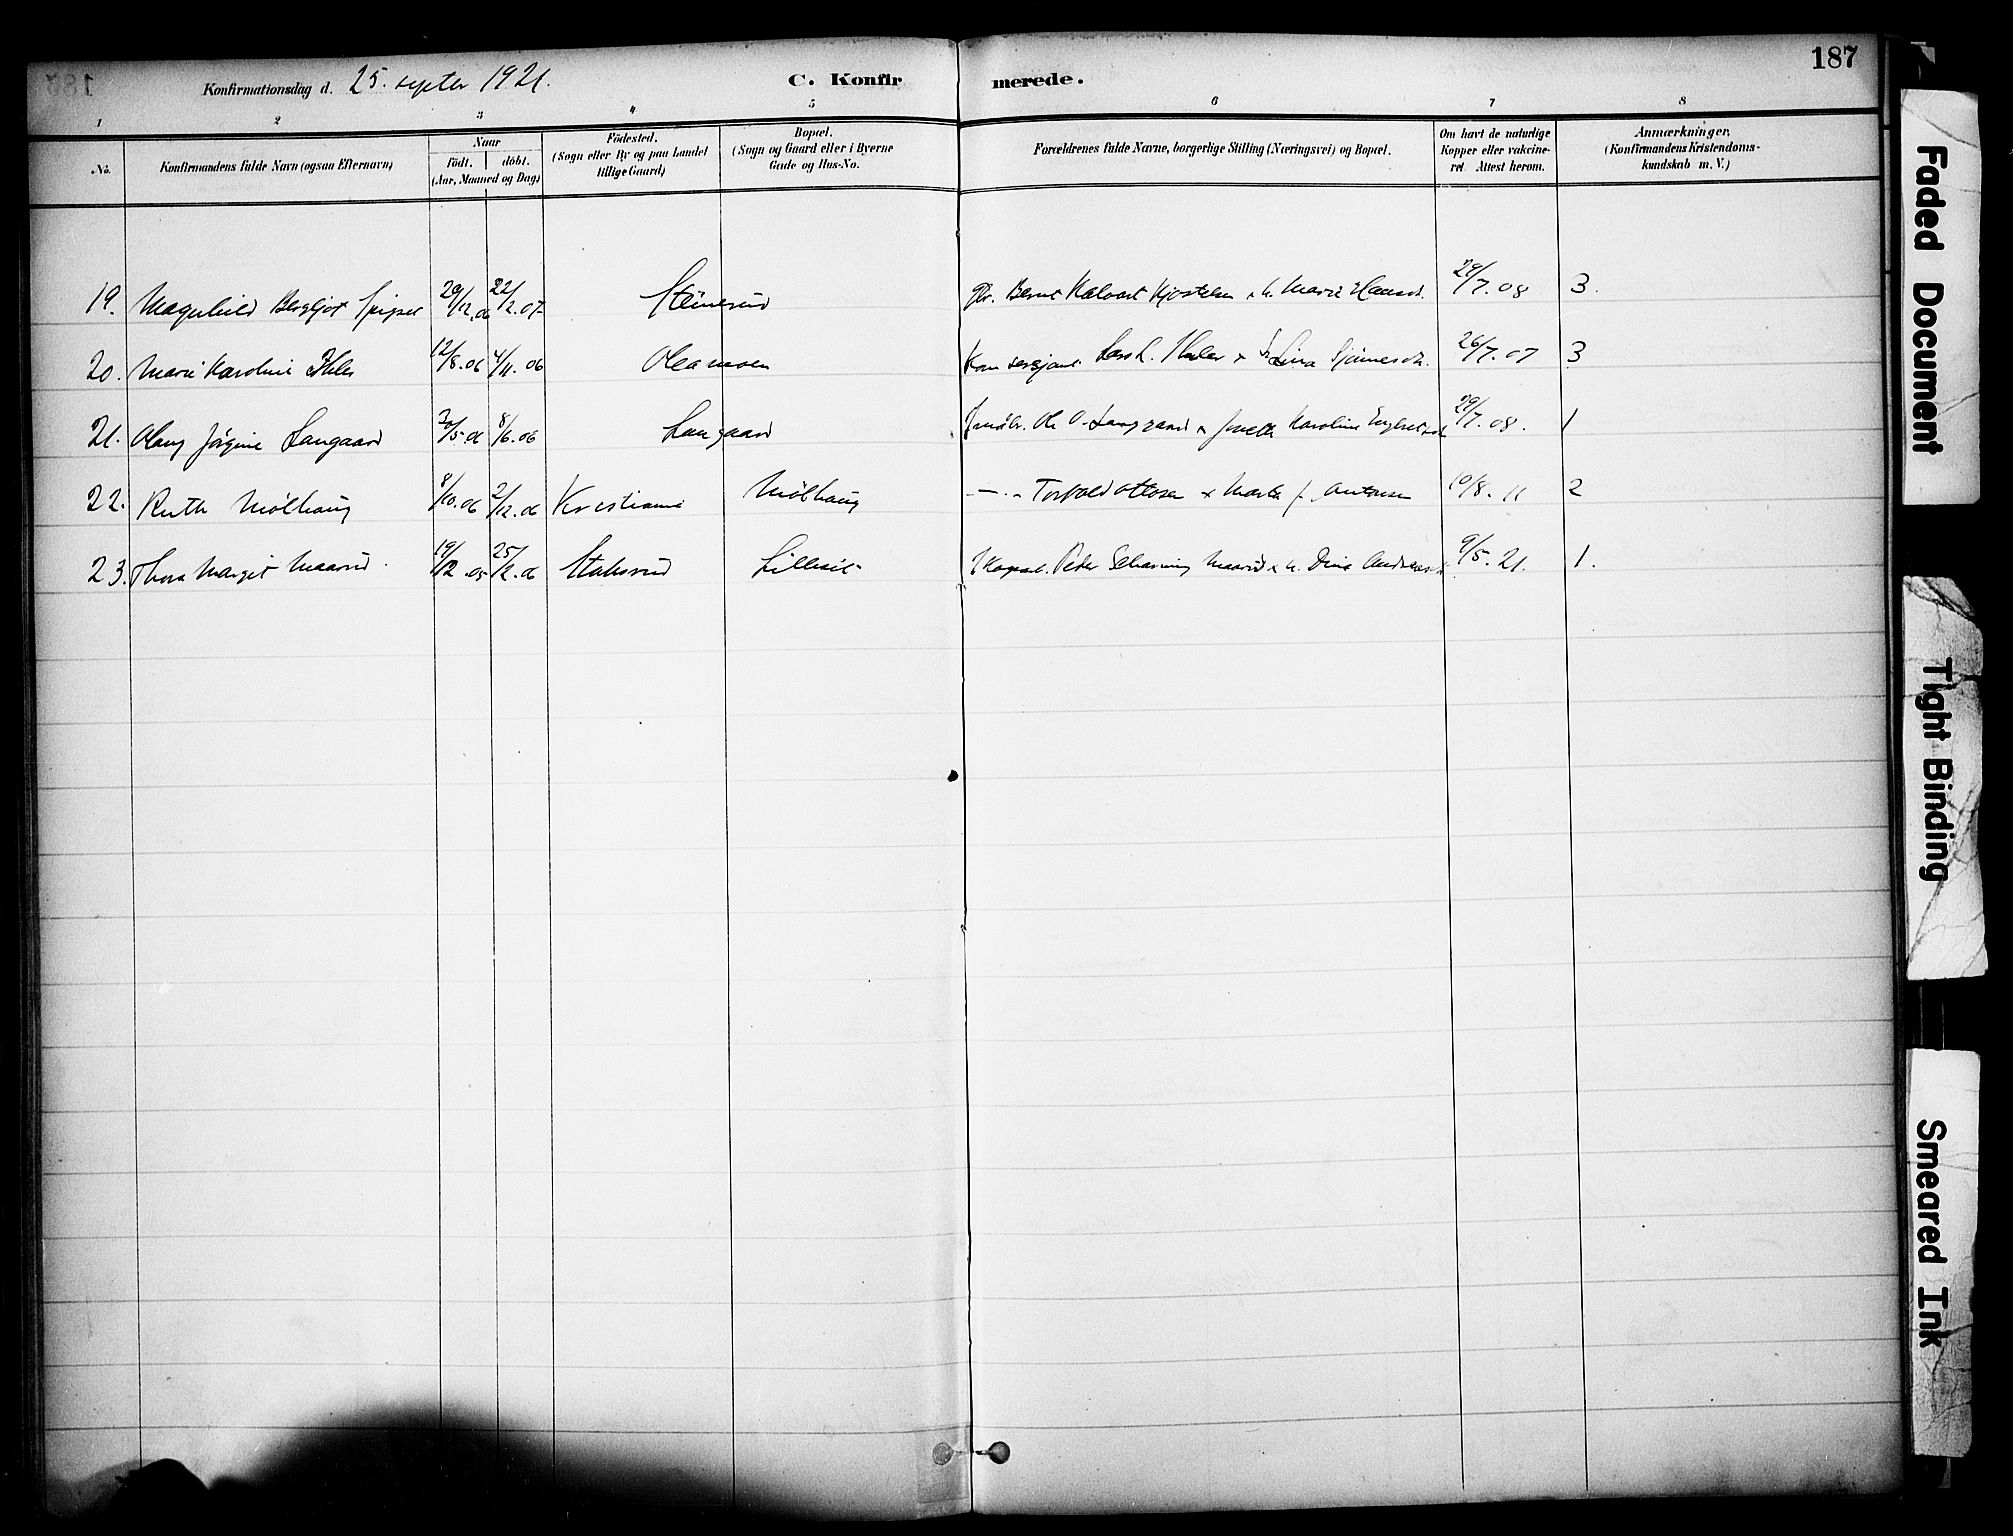 187
Konfirmationsdag d. 25. septer 1921.
C. Konfirmerede.
1 2 3 4 5 6 7 8
No.
Konfirmandens fulde Navn (ogsaa Efternavn)
Naar
født. døbt.
(Aar, Maaned og Dag)
Fødested.
(Sogn eller By og paa Landet
tillige Gaard)
Bopæl.
(Sogn og Gaard eller i Byerne
Gade og Hus-No.
Forældrenes fulde Navne, borgerlige Stilling (Næringsvei) og Bopæl.
Om havt de naturlige
Kopper eller vakcine-
ret. Attest herom.
Anmærkninger.
(Konfirmandens Kristendoms-
kundskab m. V.)
19. Magnhild Bergljot 29/12.06 22/2.07 Steinerud Bernt Halvart Kjostelsen Marie 29/7.08 3.
20. Marie Karoline Ihler 12/8.06 4/11.06 Oleamoen Lars L. Ihler Lina 26/7.07 3
21. Olaug Jørgine Langaard 30/5.06 8/6.06 Langaard Ole O. Langgaard Karoline 29/7.08. 1
22. Ruth Mølhaug 8/10.06 2/12.06 Kristiania Mølhaug Torvald Ottosen Marta f. Antonsen 10/8.11 2
23. Thora Margit Maarud. 19/12.05 25/2.06 Staksrud Peder Maarud Dina 9/5.21. 1.
Faded Document
Tight Binding
Smeared Ink